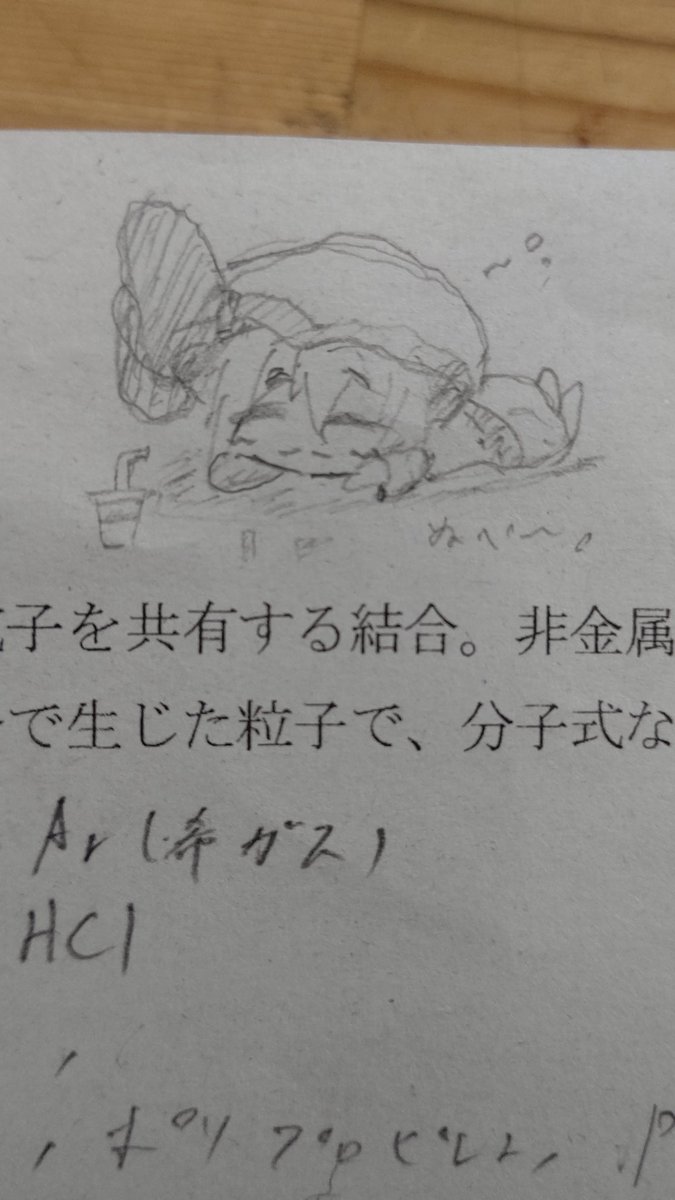 ぬへ〜。
子を共有する結合。非金属
で生じた粒子で、分子式な
Ar(希ガス)
HCl
,
, ポリプロピレン,